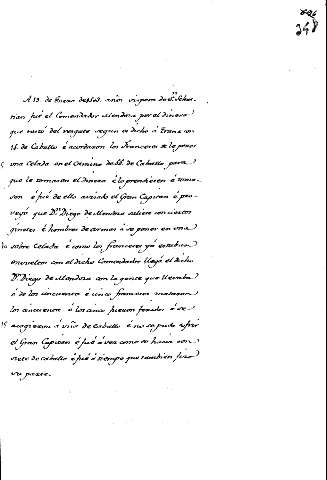 248
A 19 de Enero de 1503 años vispera de Sn. Sebas-
tian fué el Comendador Mendoza por el dinero
que restó del rescate segun es dicho á
de Caballo é acordaron los Franceses de le poner
una celada en el Camino de de Caballo para
que le tomasen el dinero é lo prendiesen é toma-
sen é fué de ello avisado el Gran Capitan é pro-
veyó que Dn. Diego de Mendoza saliese con ciertos
ginetes é hombres de armas á se poner en una
10 sobre celada é como los franceses ya estaban
envueltos con el dicho Comendador llegó el dicho
Dn. Diego de Mendoza con la gente que llevaba
é de los cincuenta é cinco franceses mataron
los cincuenta é los cinco fueron é se
15 acogieron á de Caballo é no se pudo sufrir
el Gran Capitan é fué á ver como se hacia con
de caballo é fué á tiempo que tambien hizo
su parte.